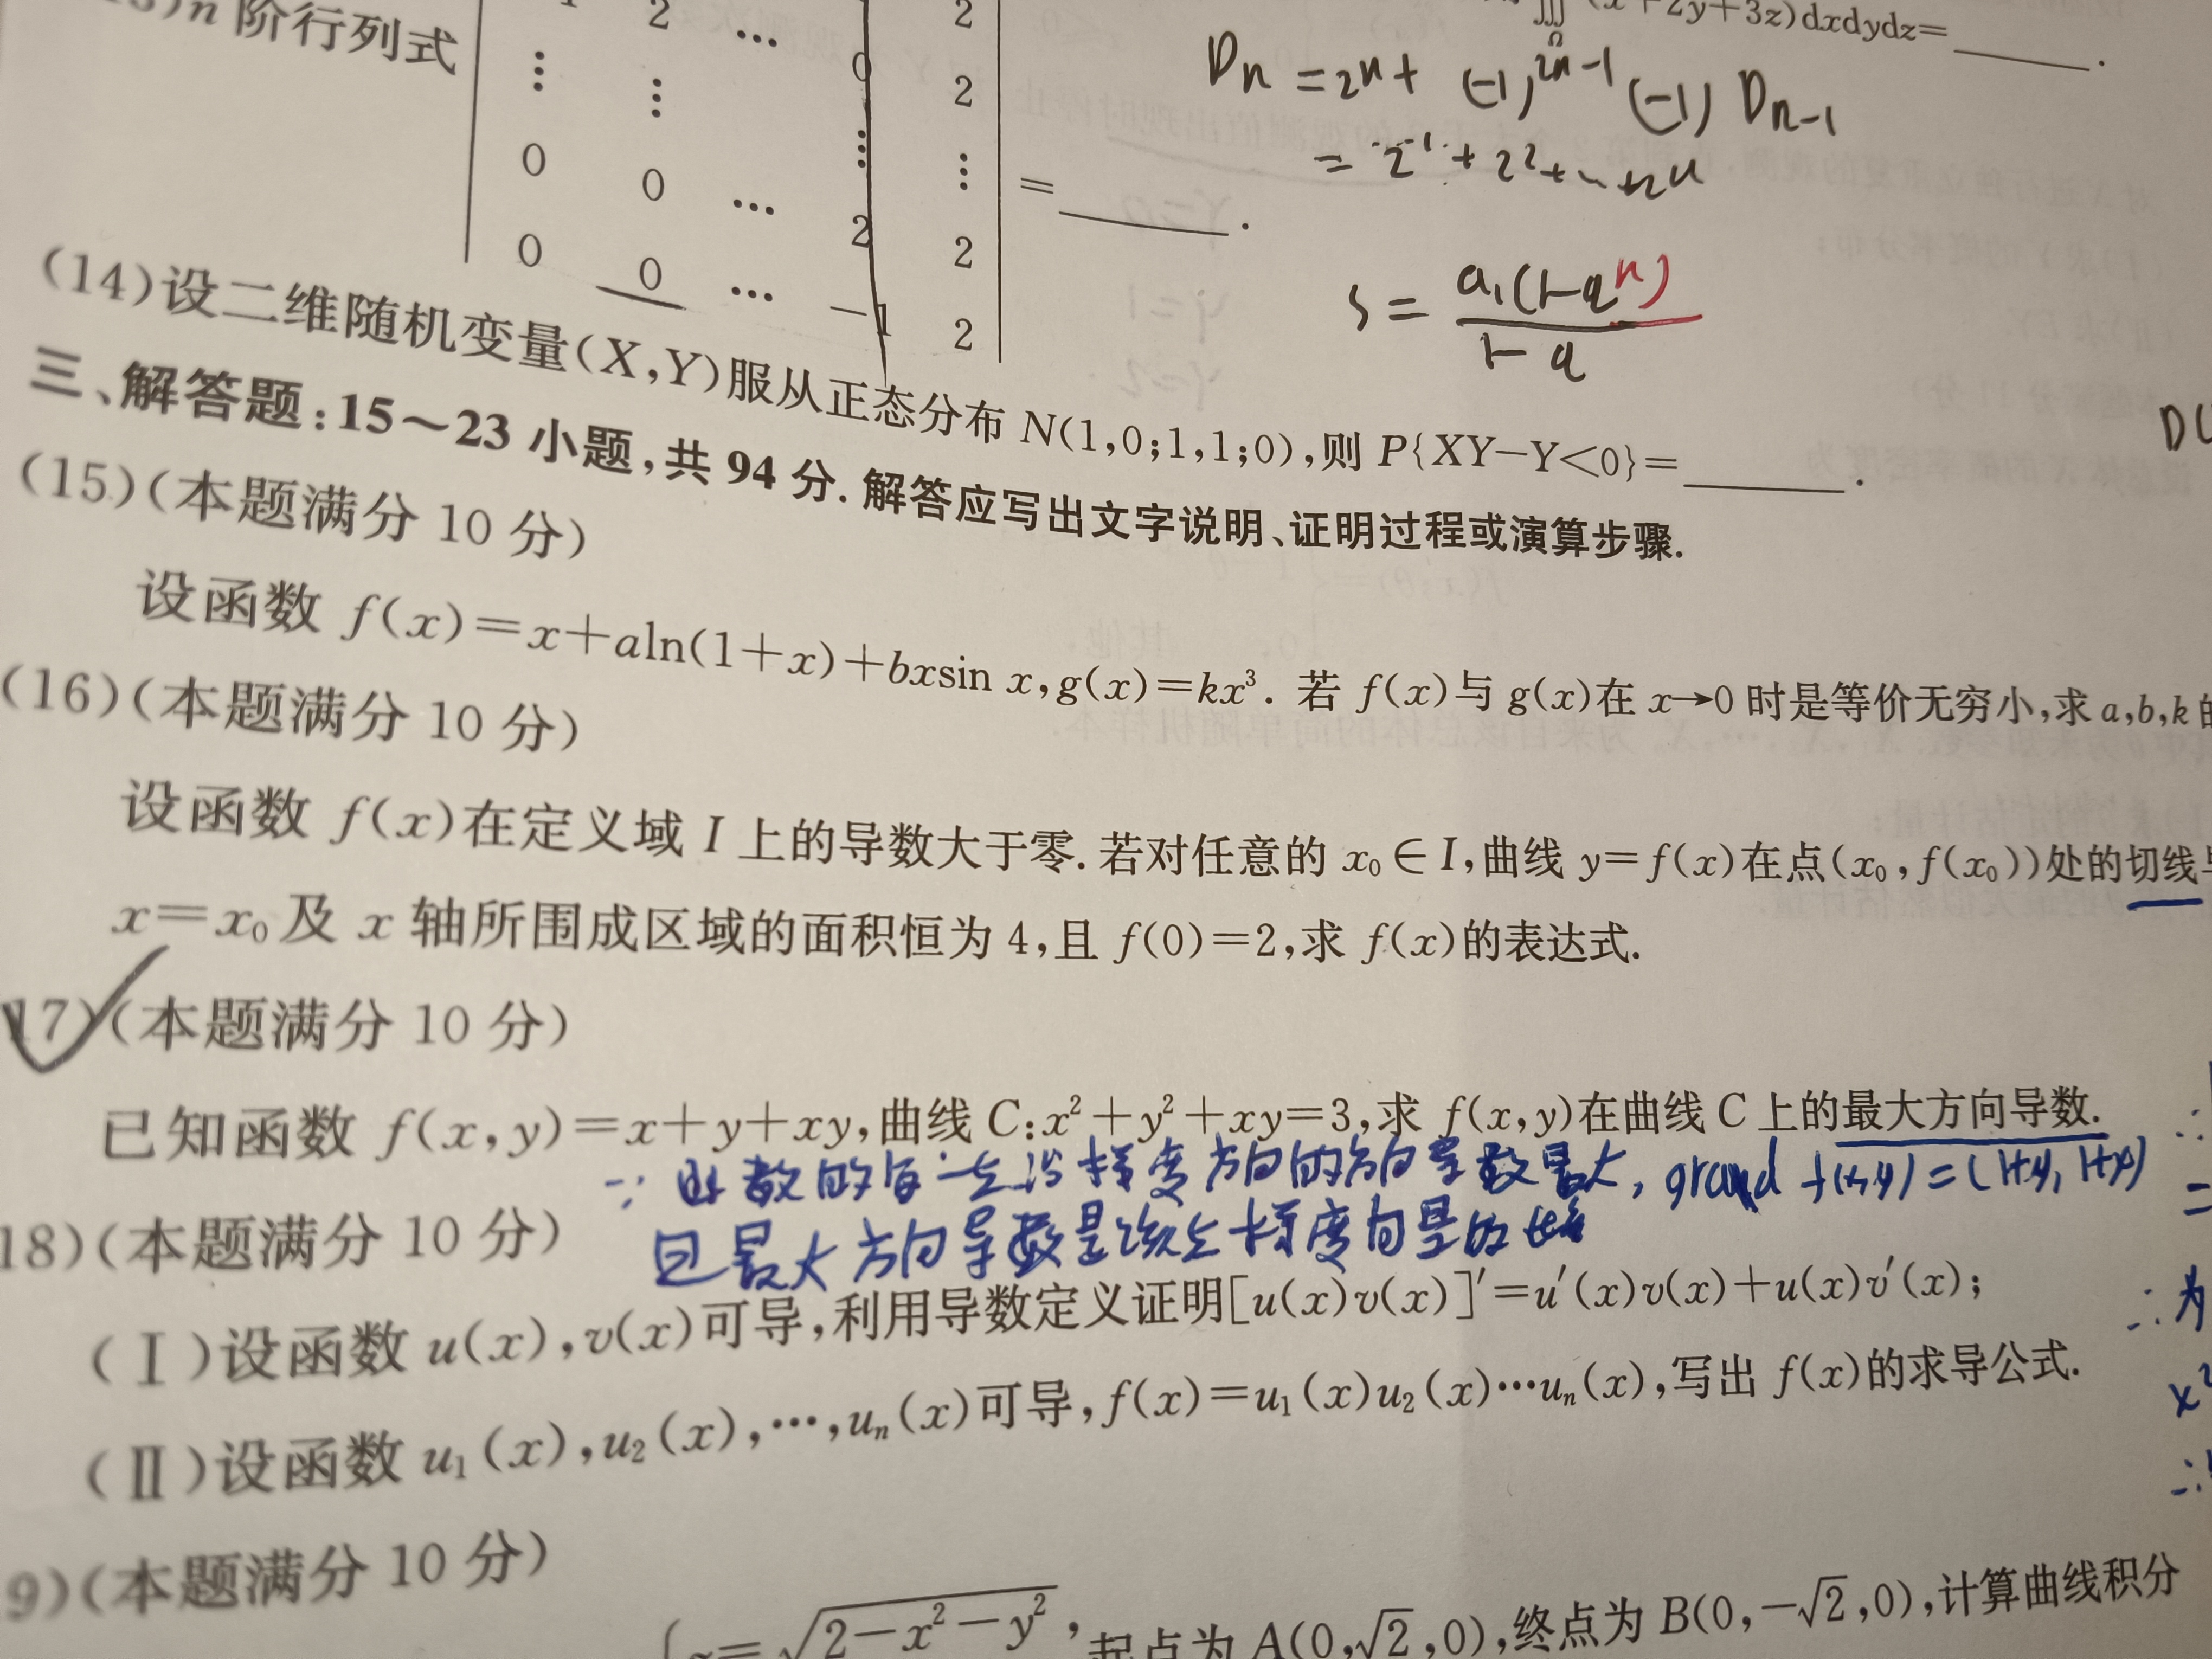 n 阶行列式
2 … 2
(x+2y+3z)dxdydz=______.
⋮ ⋮ 0 2
Dn = 2^n + (-1)^{2n-1} (-1) D_{n-1}
0 0 … ⋮ ⋮ =______.
= 2^1 + 2^2 + … + 2^n
0 0 … 2 2
-1 2
S = a₁(1-q^n) / 1-q
(14)设二维随机变量(X,Y)服从正态分布 N(1,0;1,1;0),则 P{XY-Y<0}=______.
三、解答题:15~23 小题,共 94 分.解答应写出文字说明、证明过程或演算步骤.
(15)(本题满分 10 分)
设函数 f(x)=x+aln(1+x)+bxsin x,g(x)=kx³. 若 f(x)与 g(x)在 x→0 时是等价无穷小,求 a,b,k
(16)(本题满分 10 分)
设函数 f(x)在定义域 I 上的导数大于零.若对任意的 x₀∈I,曲线 y=f(x)在点(x₀,f(x₀))处的切线
x=x₀ 及 x 轴所围成区域的面积恒为 4,且 f(0)=2,求 f(x)的表达式.
17)(本题满分 10 分)
已知函数 f(x,y)=x+y+xy,曲线 C:x²+y²+xy=3,求 f(x,y)在曲线 C 上的最大方向导数.
∵ 数的每一点沿梯度方向的方向导数最大, grand f(x,y)=(1+y, 1+x)
且最大方向导数是该点梯度向量的
18)(本题满分 10 分)
(Ⅰ)设函数 u(x),v(x)可导,利用导数定义证明[u(x)v(x)]′=u′(x)v(x)+u(x)v′(x);
∴ 为
(Ⅱ)设函数 u₁(x),u₂(x),…,uₙ(x)可导,f(x)=u₁(x)u₂(x)…uₙ(x),写出 f(x)的求导公式.
x²
9)(本题满分 10 分)
z=√(2-x²-y²), 起点为 A(0,√2,0),终点为 B(0,-√2,0),计算曲线积分